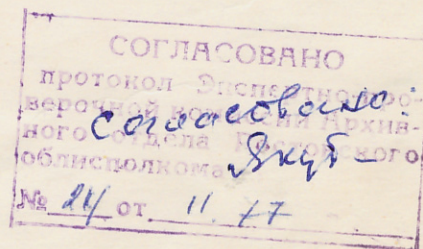 СОГЛАСОВАНО
протокол Экспертно-про-
верочной комиссии Архив-
ного отдела Ростовского
облисполкома
согласовано:
№ 24 от 11. 77